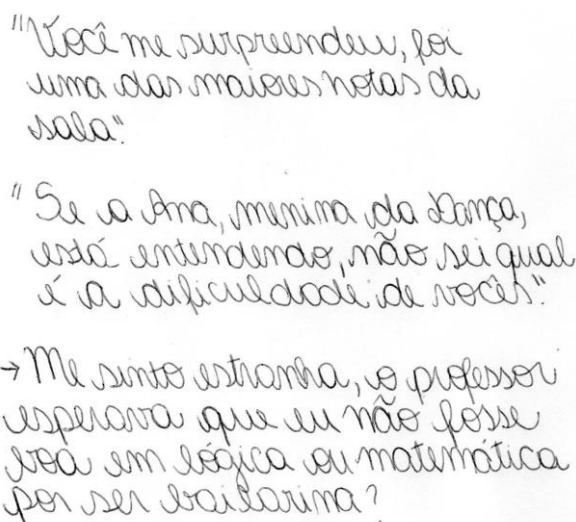 "Você me surpreendeu, foi
uma das maiores notas da
sala".
"Se a Ana, menina da Dança,
está entendendo, não sei qual
é a dificuldade de vocês".
→ Me sinto estranha, o professor
esperava que eu não fosse
boa em lógica ou matemática
por ser bailarina?